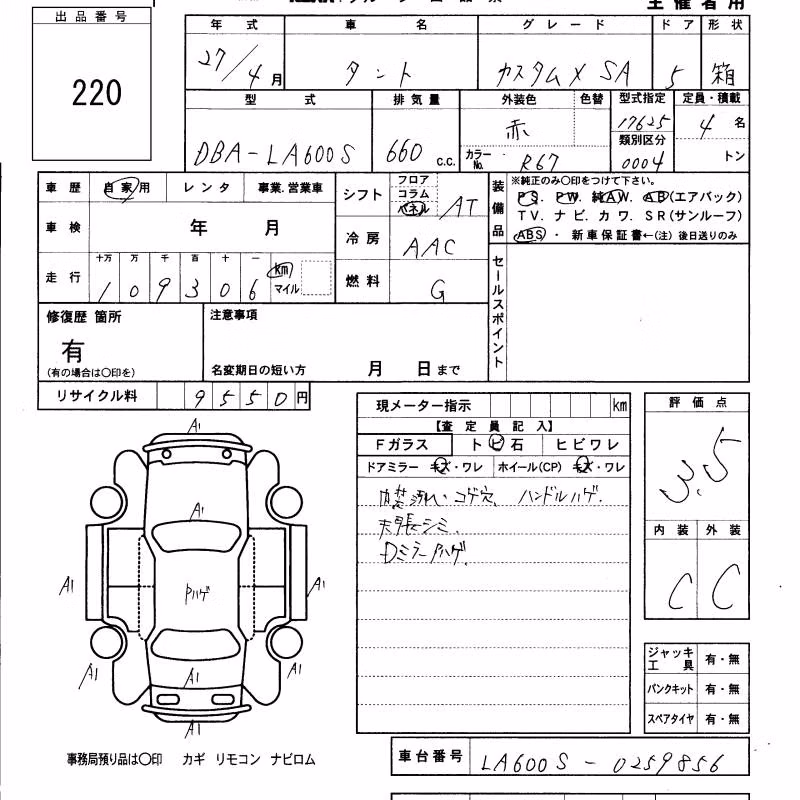 主催者用
出品番号
220
年式 車名 グレード ドア 形状
27/4月 タント カスタムX SA 5 箱
型式 排気量 外装色 色替 型式指定 定員・積載
DBA-LA600S 660 c.c. 赤 カラーNo. R67 17625 類別区分 0004 4名 トン
車歴 自家用 レンタ 事業.営業車
シフト フロア コラム パネル AT
装備品 ※純正のみ〇印をつけて下さい。
PS. PW. 純AW. AB(エアバック)
TV. ナビ. カワ. SR(サンルーフ)
ABS ・ 新車保証書←(注) 後日送りのみ
車検 年 月
冷房 AAC
走行 十万 万 千 百 十 一 km
1 0 9 3 0 6 マイル
燃料 G
セールスポイント
修復歴 箇所
有
(有の場合は〇印を)
注意事項
名変期日の短い方 月 日まで
リサイクル料 9 5 5 0 円
現メーター指示 km
【査定員記入】
Fガラス トビ石 ヒビワレ
ドアミラー キズ・ワレ ホイール(CP) キズ・ワレ
内装汚れ・コゲ穴、ハンドルハゲ.
天張シミ.
DミラーPハゲ.
評価点
3.5
内装 外装
C C
A1
A1
A1 Pハゲ A1
A1 A1 A1
A1
ジャッキ工具 有・無
パンクキット 有・無
スペアタイヤ 有・無
事務局預り品は〇印 カギ リモコン ナビロム
車台番号 LA600S - 0259856